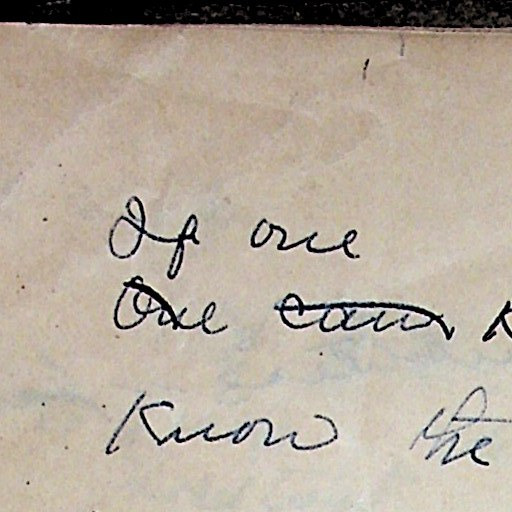 If one
One can
Know the